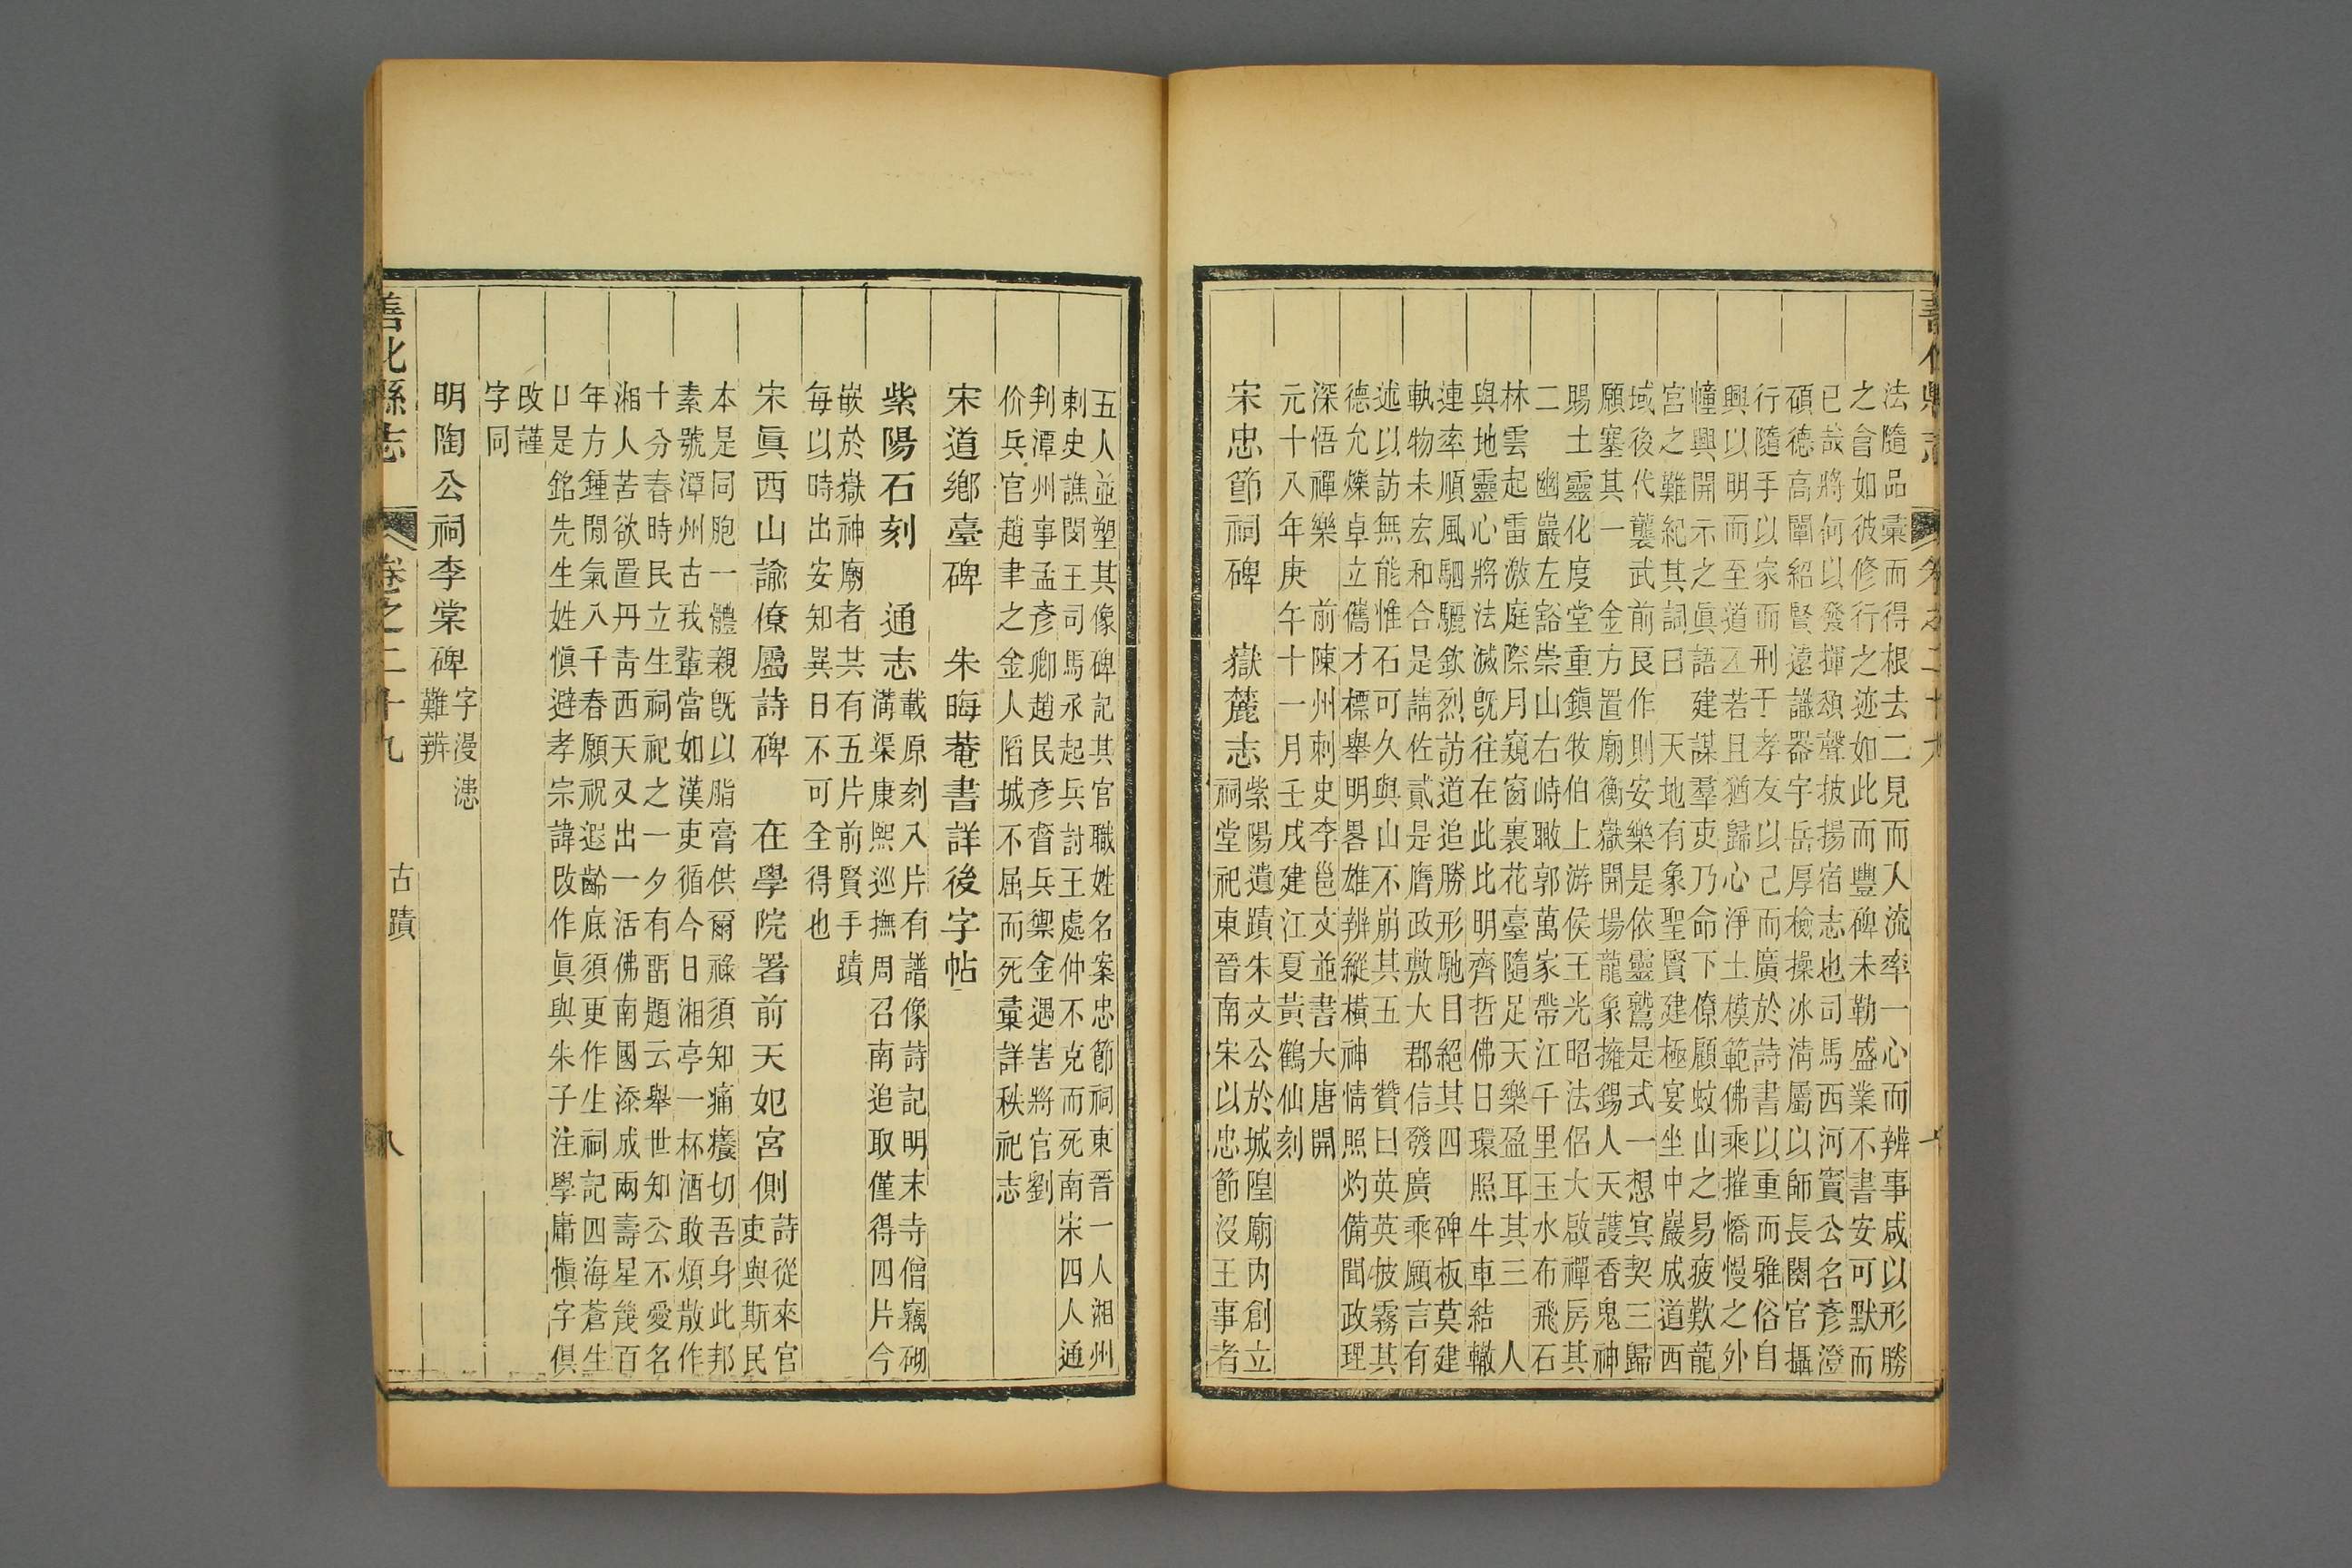 法隨品彙而得根去二見而人流率一心而辨事咸以形勝
之會如彼修行之迹如此而豐碑未勒盛業不書安可默而
已哉將何以發揮頌聲披揚宿志也司馬西河竇公名彥澄
碩德高闡紹賢遠識器宇岳厚檢操冰清屬以師長闕官攝
行隨手以家而刑于孝友以己而廣於詩書以重而雅俗自
興以明而至道丕若且猶歸心淨土模範佛乘摧憍慢之外
幢興開示之眞語建謀羣吏乃命下僚顧蚊山之易疲歎龍
宮之難紀其詞曰　天地有象聖賢建極宴坐中巖成道西
域後代襲武前良作則安樂是依靈鷲是式一想冥契三歸
願塞其一　金方置廟衡嶽開場龍象擁錫人天護香鬼神
賜土靈化度堂重鎮牧伯上游侯王光昭法侶大啟禪房其
二　幽巖左豁崇山右峙瞰郭萬家帶江千里玉水布飛石
林雲起雷激庭際月窺窗裏花臺隨足天樂盈耳其三　人
與地靈心將法滅旣往在此比明齊哲佛日環照牛車結轍
連率順風駟驪欽烈訪道追勝形馳目絕其四　碑板莫建
軌物未宏和合是講佐貳是膺政敷大郡信發廣乘願言有
述以訪無能惟石可久與山不崩其五　贊曰英英披霧其
德允爍卓立儁才標舉明畧雄辨縱橫神情照灼備聞政理
深悟禪樂　前陳州刺史李邕文並書大唐開
元十八年庚午十一月壬戌建江夏黃鶴仙刻
宋忠節祠碑　嶽麓志
紫陽遺蹟朱文公於城隍廟內創立
祠堂祀東晉南宋以忠節沒王事者
善化縣志　卷之二十九
五人並塑其像碑記其官職姓名案忠節祠東晉一人湘州
刺史譙閔王司馬承起兵討王處仲不克而死南宋四人通
判潭州事孟彥卿趙民彥督兵禦金遇害將官劉
价兵官趙聿之金人陷城不屈而死彙詳秩祀志
宋道鄉臺碑　朱晦菴書詳後字帖
紫陽石刻　通志
載原刻入片有譜像詩記明末寺僧竊砌
溝渠康熙巡撫周召南追取僅得四片今
嵌於嶽神廟者共有五片前賢手蹟
每以時出安知異日不可全得也
宋眞西山諭僚屬詩碑　在學院署前天妃宮側
詩從來官
吏與斯民
本是同胞一體親旣以脂膏供爾祿須知痛癢切吾身此邦
素號潭州古我輩當如漢吏循今日湘亭一杯酒敢煩散作
十分春時民立生祠祀之一夕有畱題云舉世知公不愛名
湘人苦欲置丹靑西天又出一活佛南國添成兩壽星幾百
年方鍾閒氣入千春願祝遐齡底須更作生祠記四海蒼生
口是銘先生姓愼避孝宗諱改作眞與朱子注學庸愼字俱
改謹
字同
明陶公祠李棠碑
字漫漶
難辨
善化縣志　卷之二十九　古蹟　八